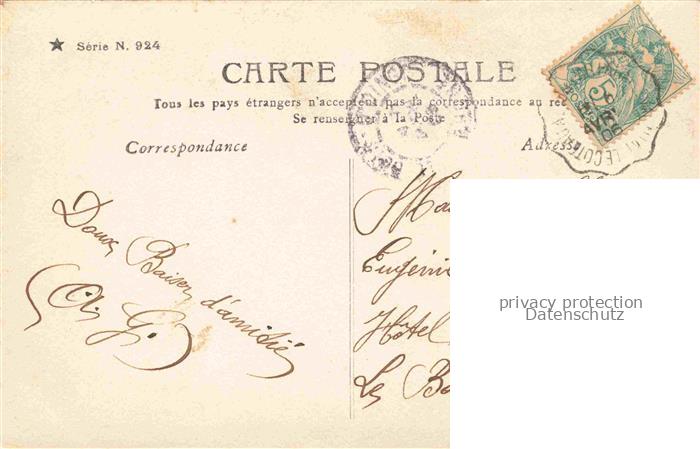 ★ Série N. 924
CARTE POSTALE
Tous les pays étrangers n'acceptent pas la correspondance au rec
Se renseigner à la Poste
Correspondance
Adresse
5
Doux Baisers d'amitié
(A. G.)
Ma
Eugénie
Hôtel
Les Ba
privacy protection
Datenschutz